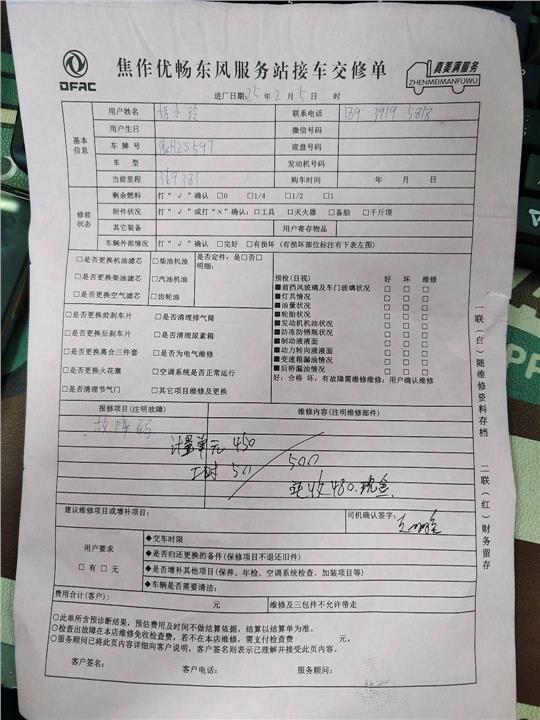 DFAC
焦作优畅东风服务站接车交修单
真美满服务
ZHENMEIMANFUWU
进厂日期:25 年 2 月 5 日 时
基本信息
用户姓名 联系电话 139 3919 5818
用户生日 微信号码
车 牌 号 豫H2S597 底盘号码
车 型 发动机号码
当前里程 369381 购车时间 年 月 日
修前状态
剩余燃料 打“√”确认 □0 □1/4 □1/2 □1
附件状况 打“√”或打“×”确认:□工具 □灭火器 □备胎 □千斤顶
其它装备 用户寄存物品
车辆外部情况 打“√”确认 □完好 □有损坏(有损坏部位标注有下表左图)
□是否更换机油滤芯 □柴油机油 是否定件:是□否□
□是否更换柴油滤芯 □汽油机油 明细:
□是否更换空气滤芯 □齿轮油
□是否更换前刹车片 □是否清理排气筒
□是否更换后刹车片 □是否清理尿素箱
□是否更换离合三件套 □是否为电气维修
□是否更换火花塞 □空调系统是否正常运行
□是否清理节气门 □其它项目维修及更换
预检(目视) 好 坏 维修
■前挡风玻璃及车门玻璃状况 □ □ □
■灯具情况 □ □ □
■油量状况 □ □ □
■轮胎状况 □ □ □
■发动机机油状况 □ □ □
■防冻防锈瓶状况 □ □ □
■制动液液面 □ □ □
■动力转向液液面 □ □ □
■变速箱漏油情况 □ □ □
■后桥漏油情况 □ □ □
好:合格 坏:有故障需维修维修:用户确认维修
报修项目(注明故障) 维修内容(注明维修部件)
故障码
计量单元 450
工时 50 500
实收480.现金
建议维修项目或增补项目: 司机确认签字:
用户要求
□有 □无
◆交车时限
◆是否归还更换的备件(保修项目不退还旧件)
◆是否增补其他项目(保养、年检、空调系统检查、加装项目等)
◆车辆是否需要清洁:
费用合计(客户): 元 维修及三包件不允许带走
○此单所含预诊断结果,预估费用及时间不做结算依据,结算以结算单为准。
○检查出故障在本店维修免收检查费,若不在本店维修,需支付检查费 元。
○服务顾问已将此页内容详细向客户说明,客户签名则表示已理解并接受此页内容。
客户签名: 客户电话: 服务顾问:
一联(白)随维修资料存档
二联(红)财务留存